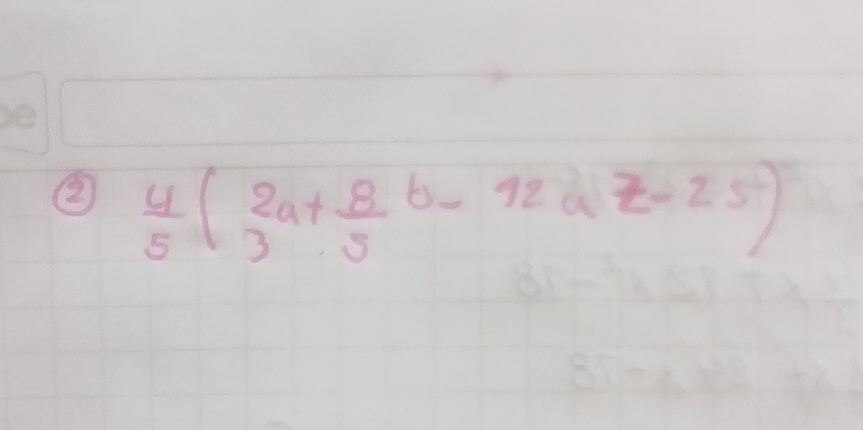 be
② 4/5 ( 2a/3 + 8/5 b - 12 a z - 25 )